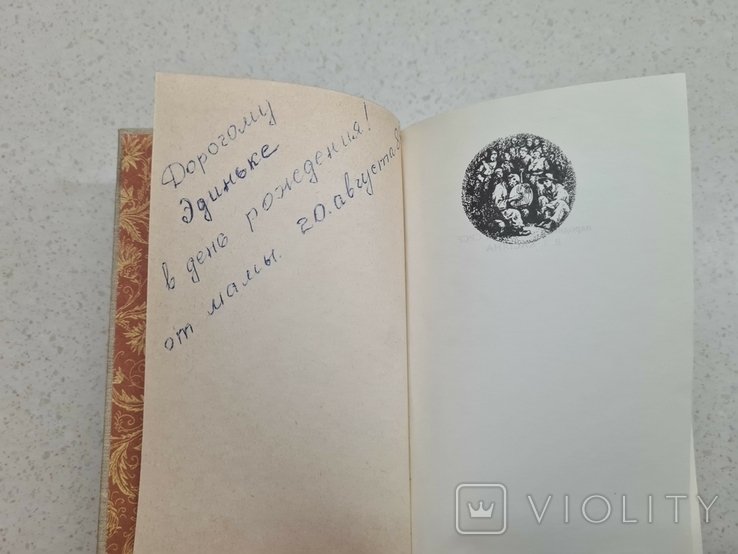 Дорогому
Эдиньке
в день рождения!
от мамы. 20. августа
VIOLITY